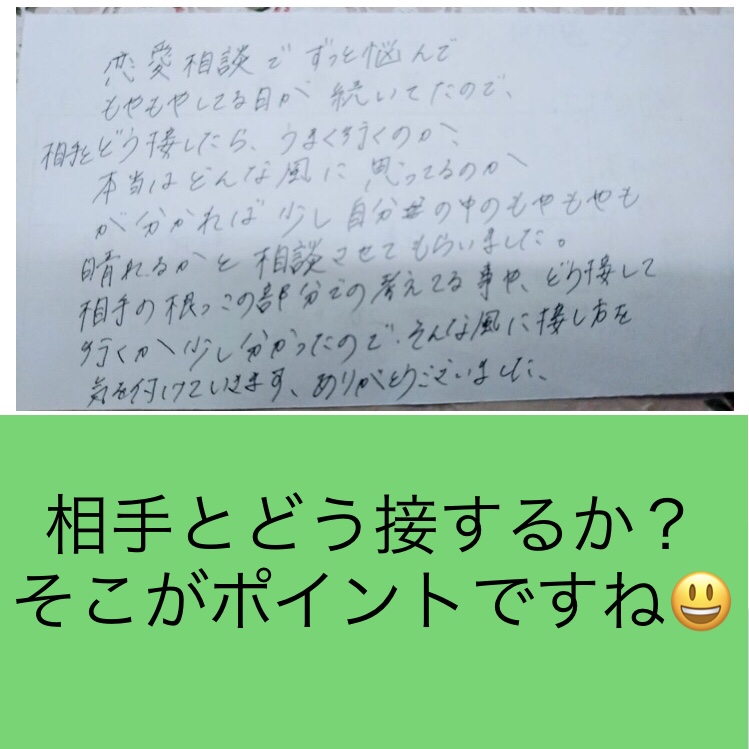 恋愛相談でずっと悩んで
もやもやしてる日が続いてたので、
相手とどう接したら、うまく行くのか、
本当はどんな風に思ってるのか
が分かれば少し自分の中のもやもやも
晴れるかと相談させてもらいました。
相手の根っこの部分での考えてる事や、どう接して
行くか少し分かったので、そんな風に接し方を
気を付けていきます、ありがとうございました、
相手とどう接するか？
そこがポイントですね😃